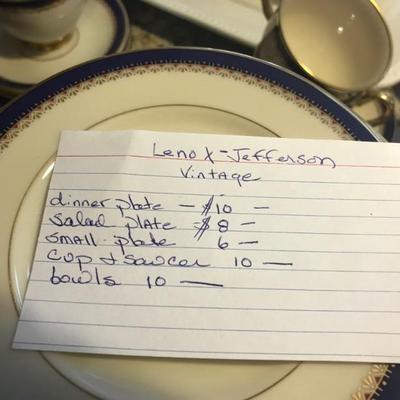 Lenox-Jefferson
Vintage
dinner plate — $10 —
salad plate $8 —
small plate 6 —
cup & sawcer 10 —
bowls 10 —